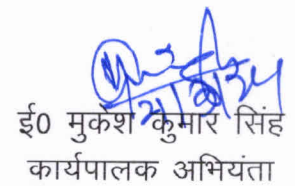 ई0 मुकेश कुमार सिंह
कार्यपालक अभियंता